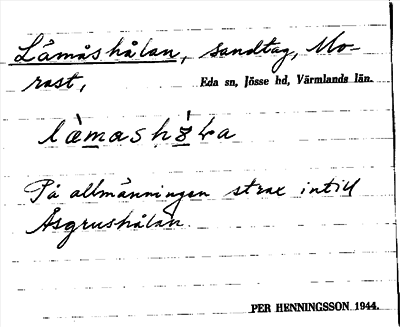 Låmåshålan, sandtag, Mo-
rast,
Eda sn, Jösse hd, Värmlands län.
På allmänningen strax intill
Åsgrushålan
PER HENNINGSSON 1944.